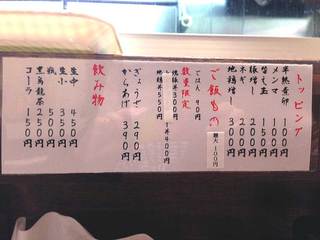 トッピング
半熟煮卵 100円
メンマ 100円
替え玉 100円
豚増し 200円
ネギ 200円
地鶏増し 300円
ご飯もの
麺大 100円
ごはん 90円
数量限定
焼豚丼 300円
しょ丼 400円
地鶏丼 550円
ぎょうざ 290円
からあげ 390円
飲み物
生中 450円
生小 350円
瓶 500円
黒烏龍茶 250円
コーラ 150円